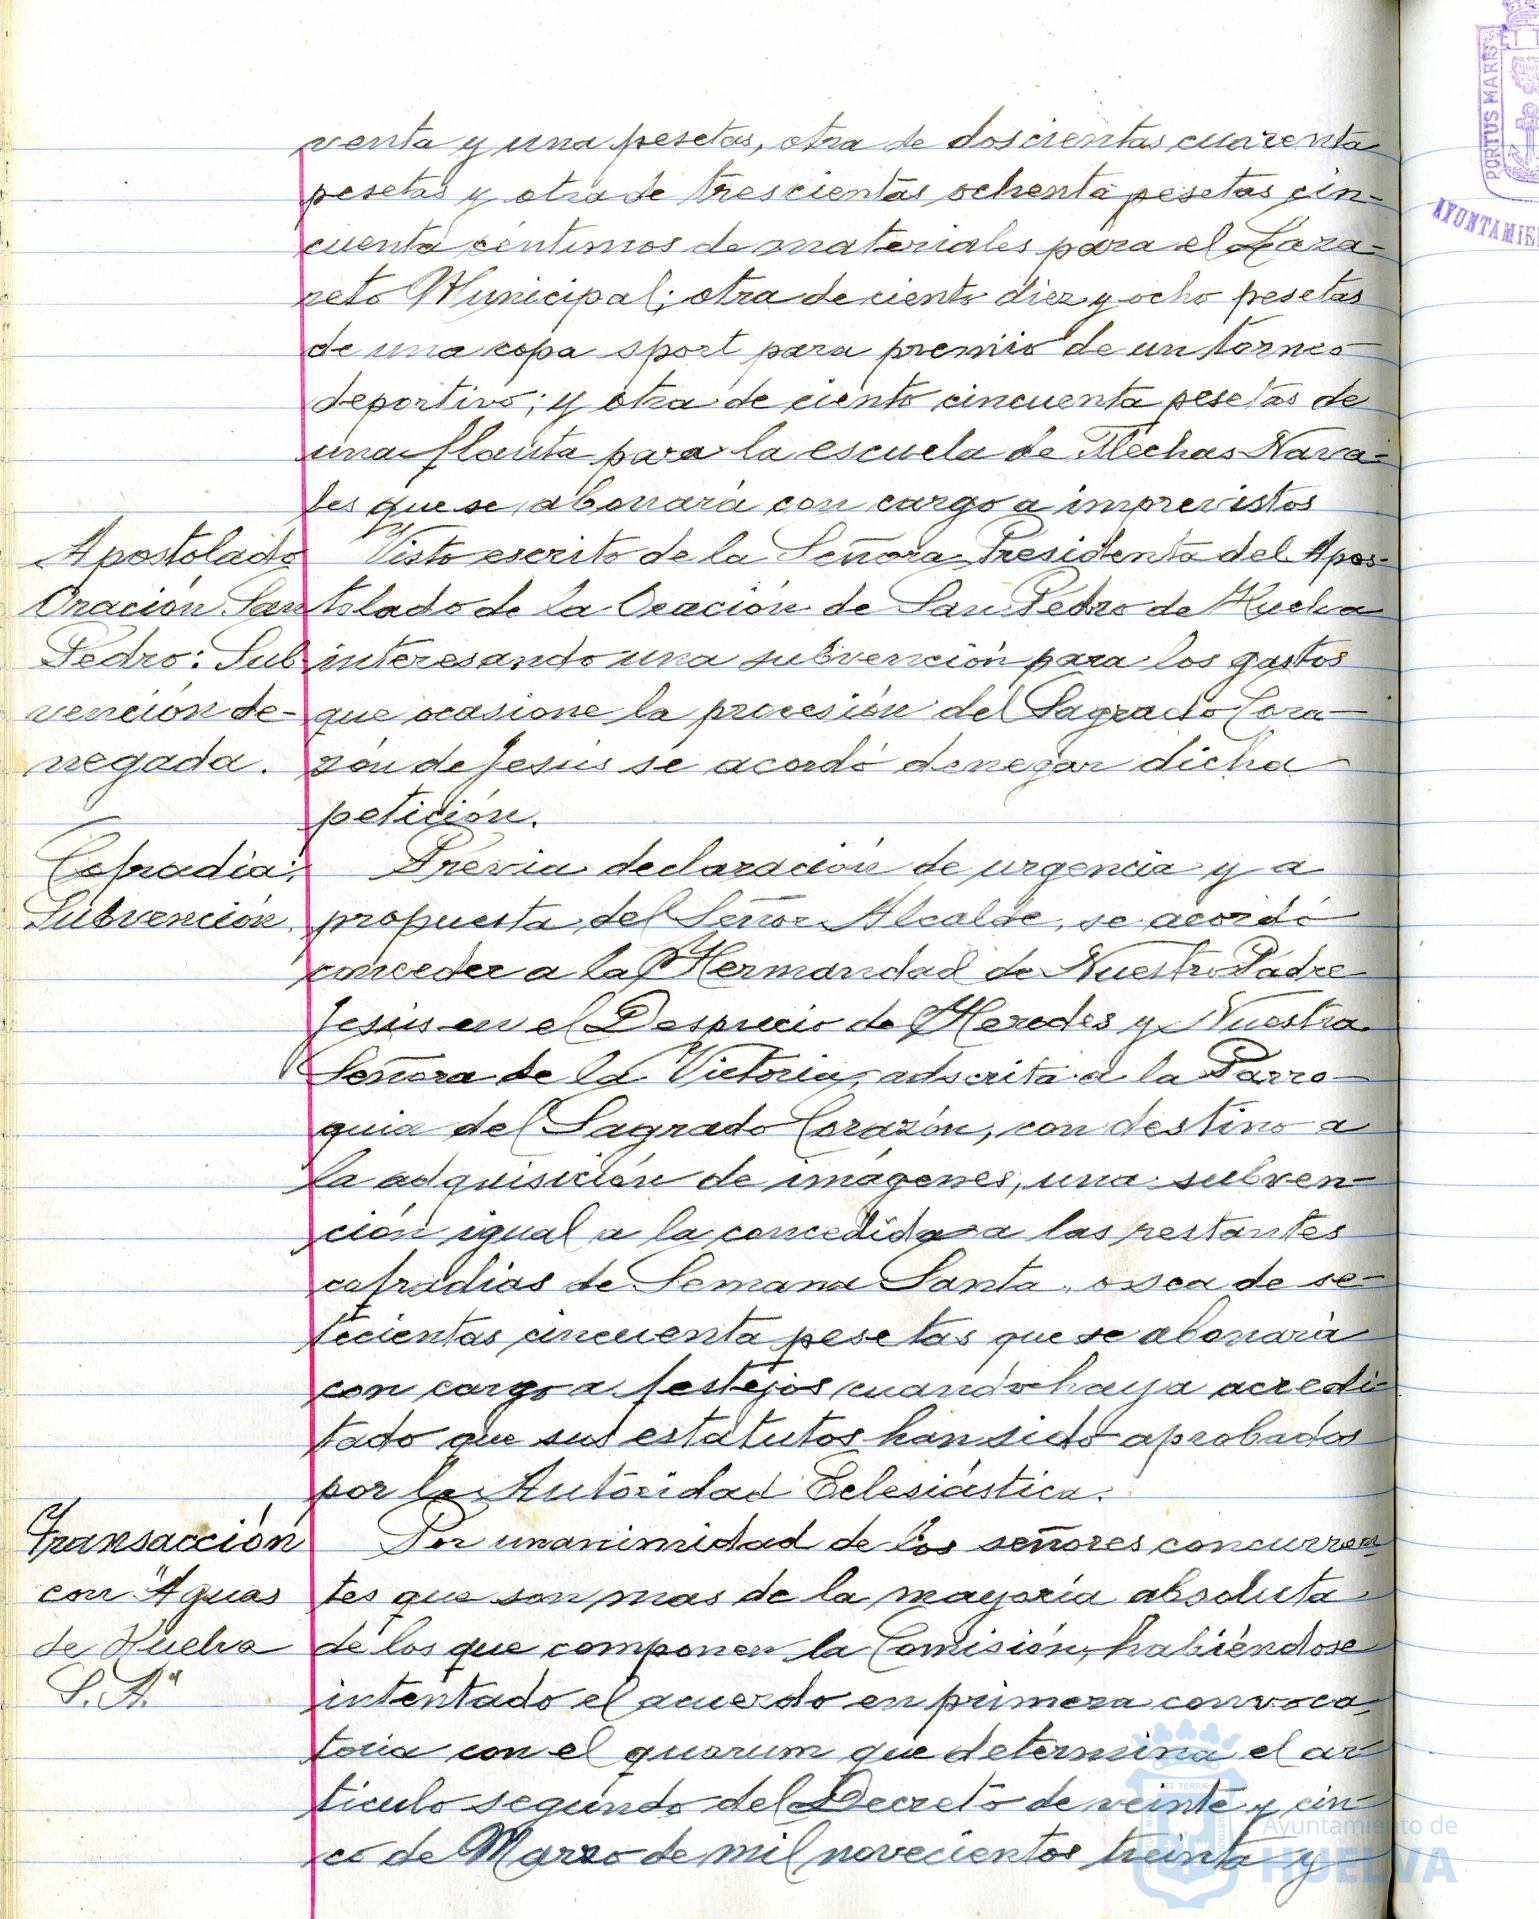 venta y una pesetas, otra de doscientas cuarenta
pesetas y otra de trescientas ochenta pesetas cin-
cuenta céntimos de materiales para el Laza-
reto Municipal; otra de ciento diez y ocho pesetas
de una copa sport para premio de un torneo
deportivo; y otra de ciento cincuenta pesetas de
una flauta para la escuela de Flechas Nava-
les que se abonará con cargo a imprevistos
Apostolado
Oración San
Pedro: Sub
vención de-
negada.
Visto escrito de la Señora Presidenta del Apos-
tolado de la Oración de San Pedro de Huelva
interesando una subvención para los gastos
que ocasione la procesión del Sagrado Cora-
zón de Jesús se acordó denegar dicha
petición.
Cofradía:
Subvención.
Previa declaración de urgencia y a
propuesta del Señor Alcalde, se acordó
conceder a la Hermandad de Nuestro Padre
Jesús en el Desprecio de Herodes y Nuestra
Señora de la Victoria, adscrita a la Parro-
quia del Sagrado Corazón, con destino a
la adquisición de imágenes, una subven-
ción igual a la concedida a las restantes
cofradías de Semana Santa, o sea de se-
tecientas cincuenta pesetas que se abonará
con cargo a festejos cuando haya acredi-
tado que sus estatutos han sido aprobados
por la Autoridad Eclesiástica.
Transacción
con "Aguas
de Huelva
S.A."
Por unanimidad de los señores concurren-
tes que son mas de la mayoría absoluta
de los que componen la Comisión, habiéndose
intentado el acuerdo en primera convoca-
toria con el quorum que determina el ar-
tículo segundo del Decreto de veinte y cin-
co de Marzo de mil novecientos treinta y
PORTUS MARIS ET T
AYUNTAMIE
Ayuntamiento de
HUELVA